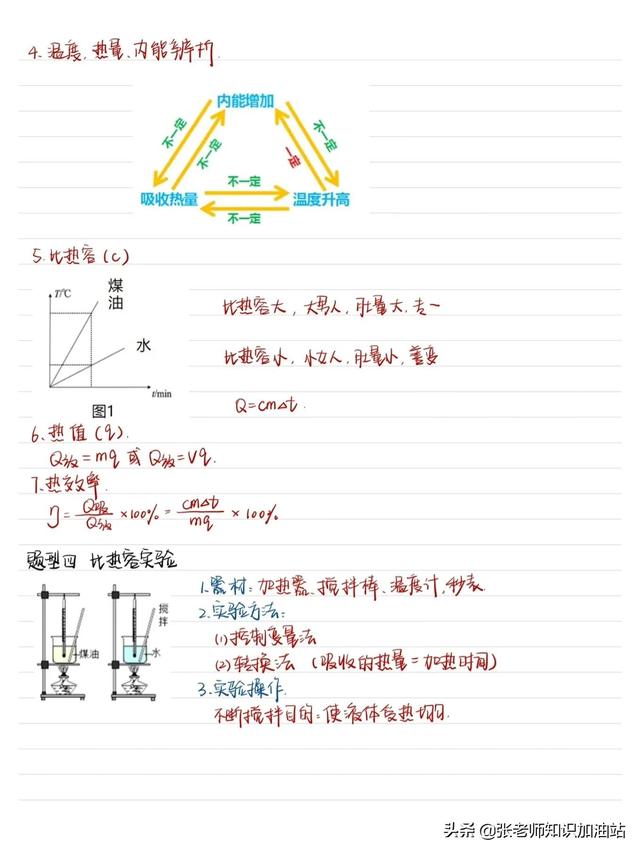 4.温度、热量、内能辨析.
内能增加
不一定
不一定
不一定
一定
吸收热量
不一定
不一定
温度升高
5.比热容(c)
T/℃
煤油
水
t/min
图1
比热容大，大男人，肚量大，专一
比热容小，小女人，肚量小，善变
Q=cm△t.
6.热值(q).
Q放=mq 或 Q放=Vq.
7.热效率.
η=Q吸/Q放×100%=cm△t/mq×100%
题型四 比热容实验
煤油
搅拌
水
1.器材：加热器、搅拌棒、温度计，秒表.
2.实验方法：
(1)控制变量法
(2)转换法（吸收的热量=加热时间）
3.实验操作.
不断搅拌目的：使液体受热均匀.
头条 @张老师知识加油站